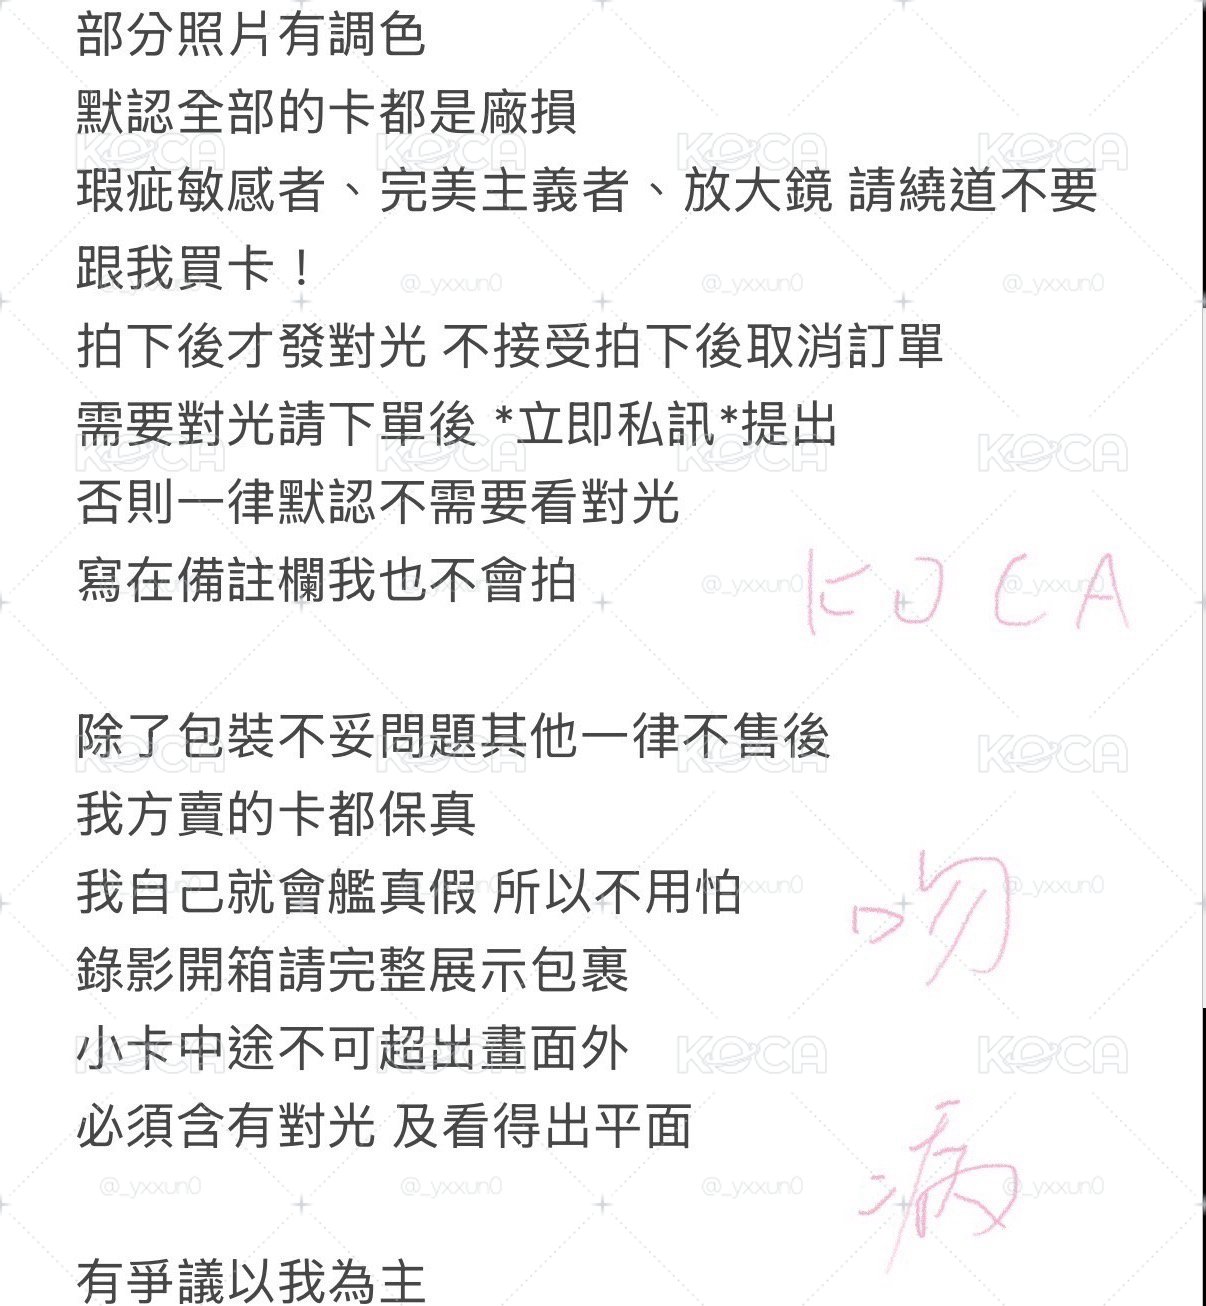 部分照片有調色
默認全部的卡都是廠損
瑕疵敏感者、完美主義者、放大鏡 請繞道不要
跟我買卡！
拍下後才發對光 不接受拍下後取消訂單
需要對光請下單後 *立即私訊*提出
否則一律默認不需要看對光
寫在備註欄我也不會拍
KOCA
除了包裝不妥問題其他一律不售後
我方賣的卡都保真
我自己就會艦真假 所以不用怕
吻
錄影開箱請完整展示包裹
小卡中途不可超出畫面外
必須含有對光 及看得出平面
病
有爭議以我為主
KOCA
@_yxxun0